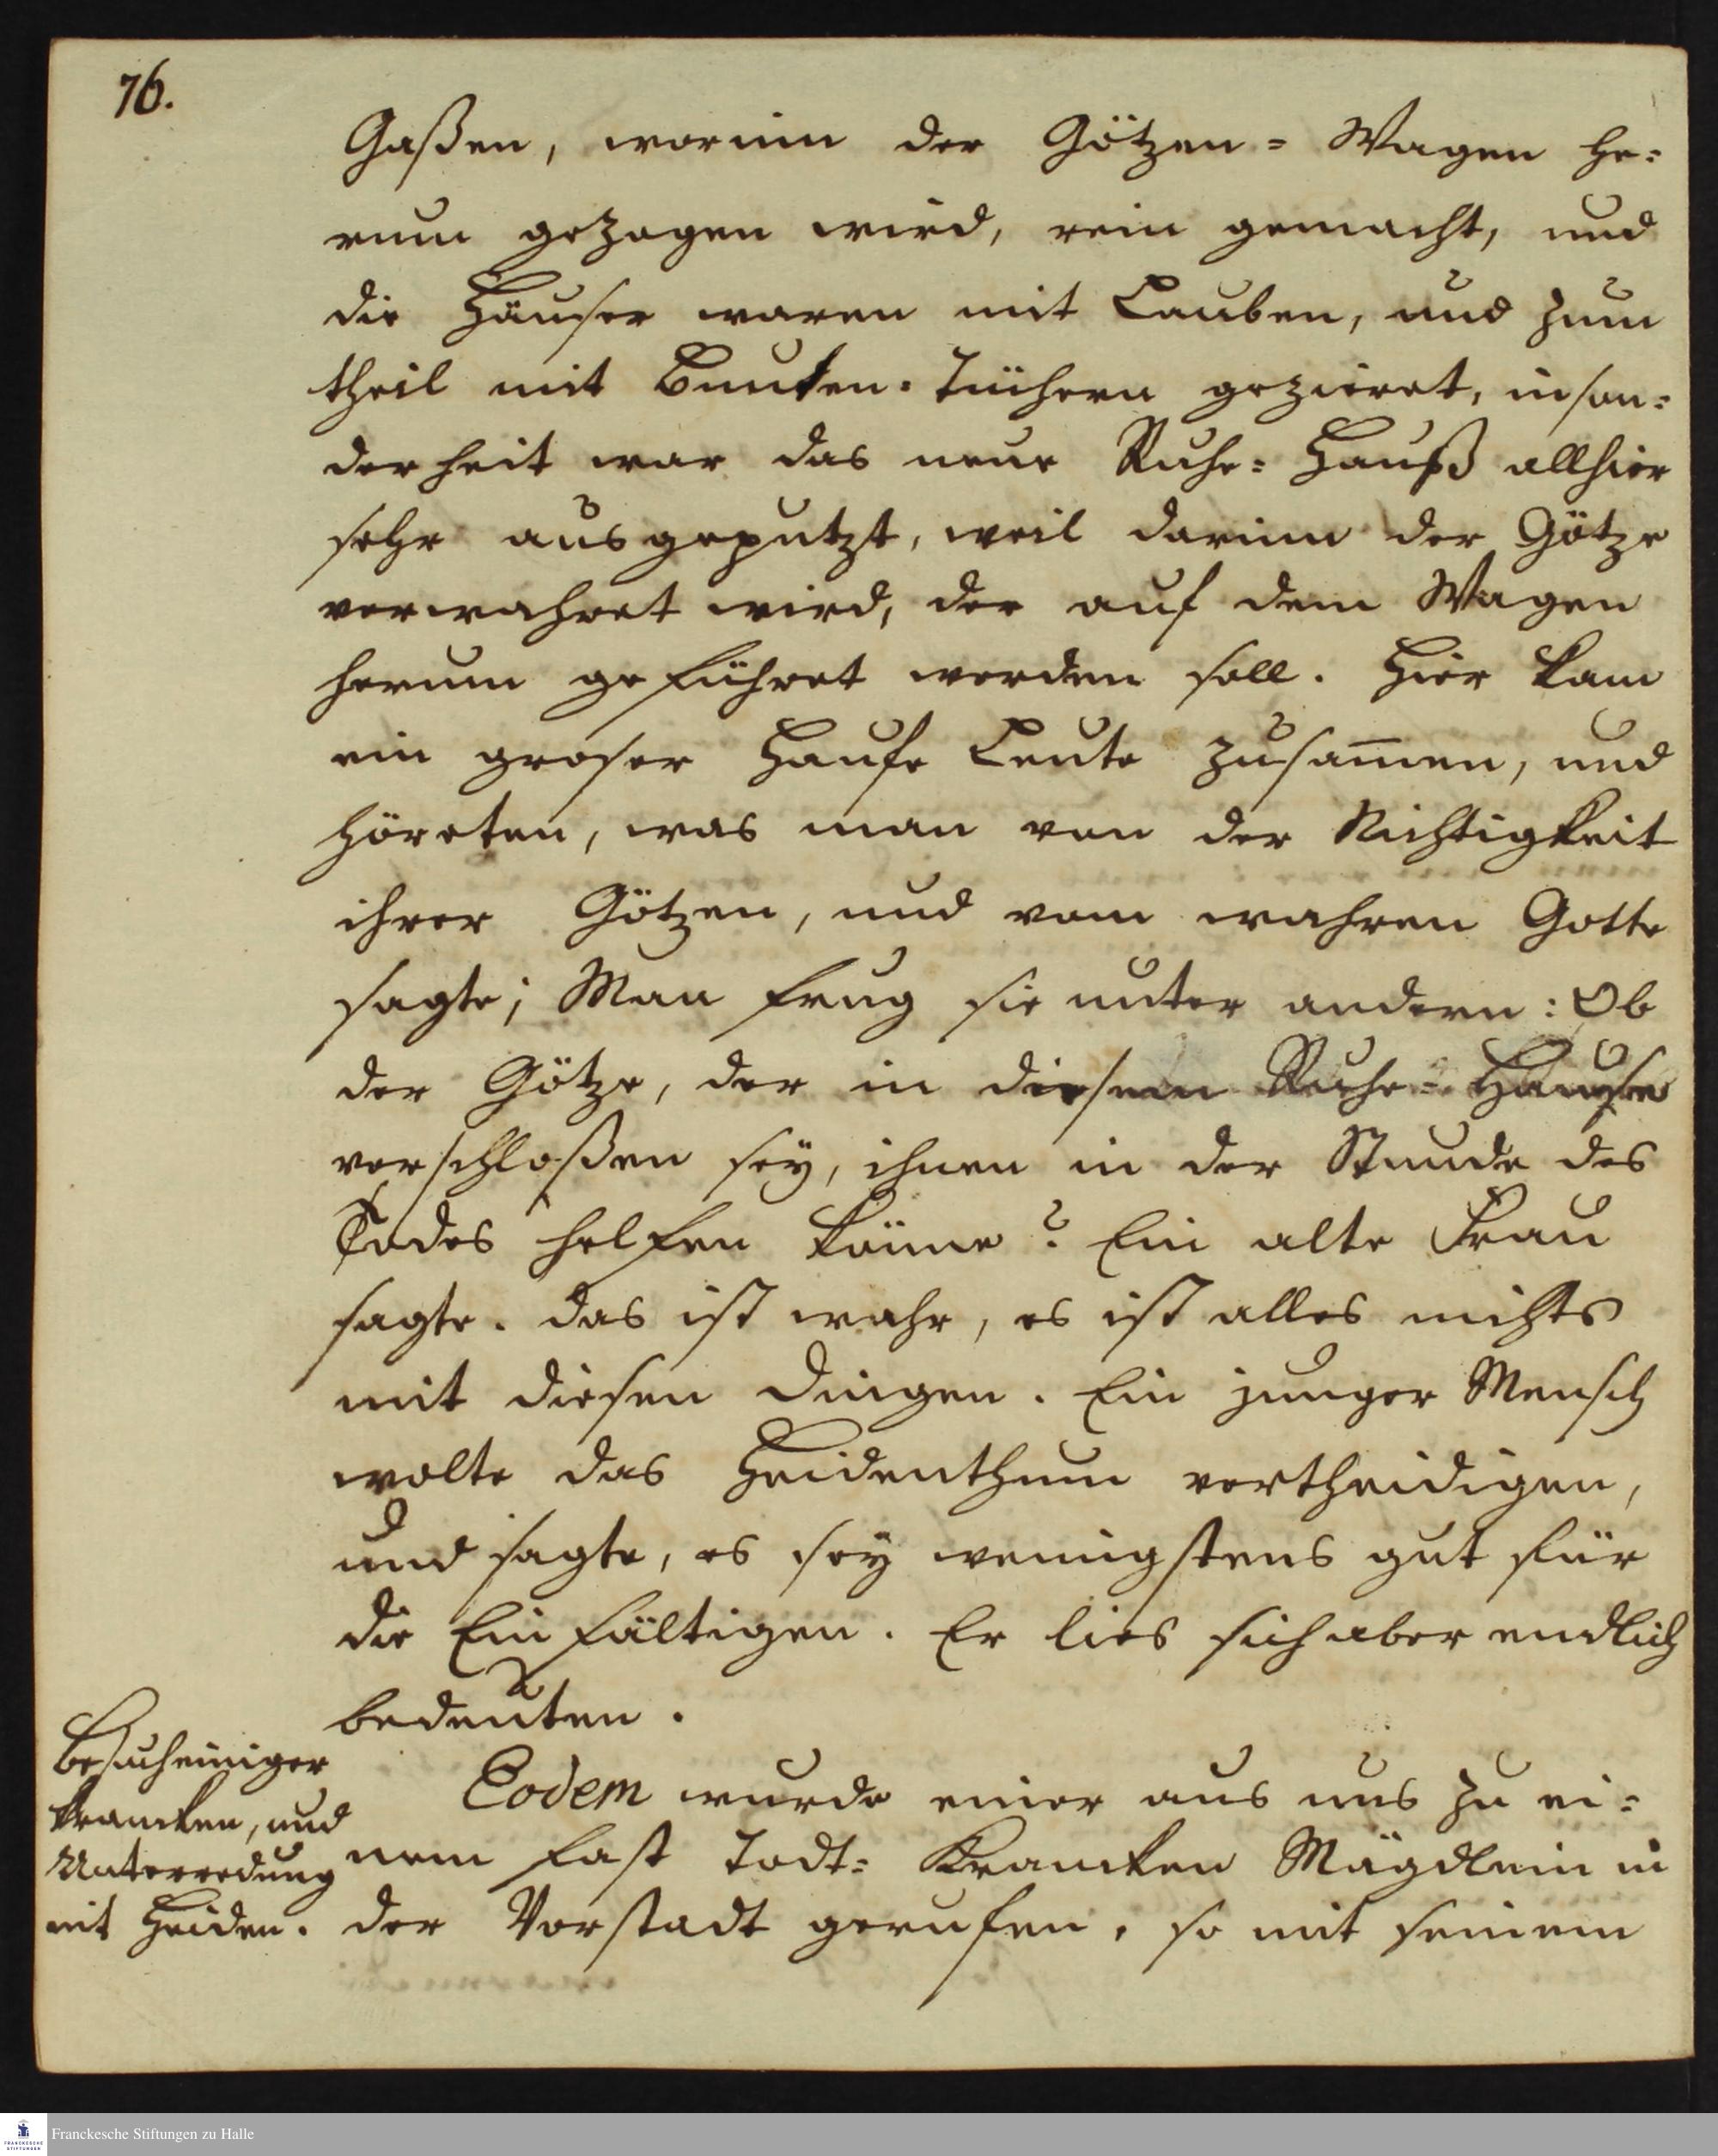 76.
Gaßen, worinn der Götzen=Wagen he=
rum gezogen wird, rein gemacht, und
die Häuser waren mit Lauben, und zum
theil mit bunten=Tüchern gezieret, inson=
derheit war das neue Ruhe=Hauß allhier
sehr ausgeputzt, weil darinn der Götze
verwahret wird, der auf dem Wagen
herum geführet werden soll. Hier kam
ein groser Haufe Leute zusam̄en, und
höreten, was man von der Nichtigkeit
ihrer Götzen, und vom wahren Gotte
sagte; Man frug sie unter andern: Ob
der Götze, der in diesem Ruhe=Hause
verschloßen sey, ihnen in der Stunde des
Todes helfen könne? Ein alte Frau
sagte. das ist wahr, es ist alles nichts
mit diesen Dingen. Ein junger Mensch
wolte das Heidenthum vertheidigen,
und sagte, es sey wenigstens gut für
die Einfältigen. Er lies sich aber endlich
bedeuten.
Besuch einiger
krancken, und
Unterredung
mit Heiden.
Eodem wurde einer aus uns zu ei=
nem fast Todt=Krancken Mägdlein in
der Vorstadt gerufen, so mit seinem
Franckesche Stiftungen zu Halle
FRANCKESCHE
STIFTUNGEN